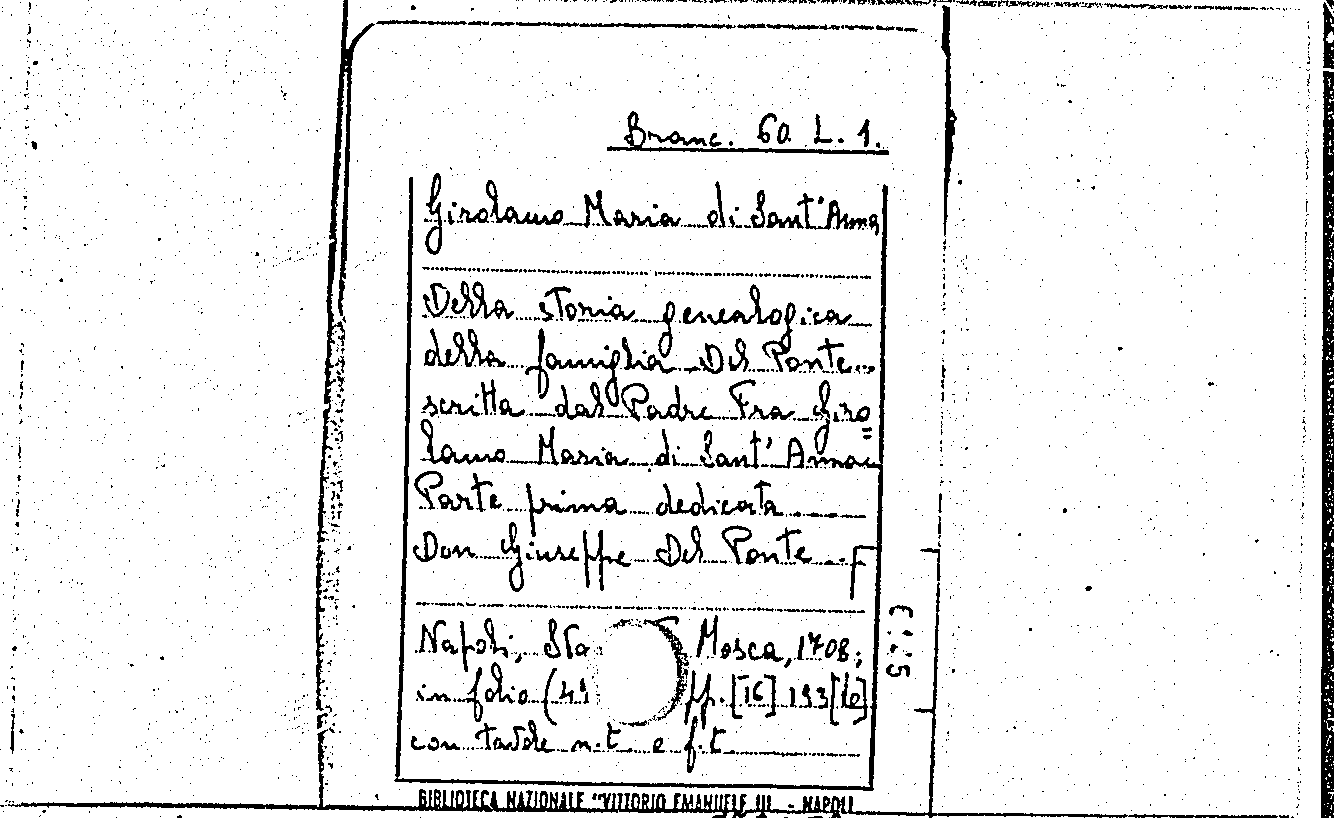 Branc. 60. L. 1.
Girolamo Maria di Sant'Anna
Della storia genealogica
della famiglia Del Ponte..
scritta dal Padre Fra Giro=
lamo Maria di Sant'Anna
Parte prima dedicata
Don Giuseppe Del Ponte
Napoli, Mosca, 1708;
in folio pp. [16] 193 [10]
con tavole n.t. e f.t.
BIBLIOTECA NAZIONALE "VITTORIO EMANUELE III - NAPOLI